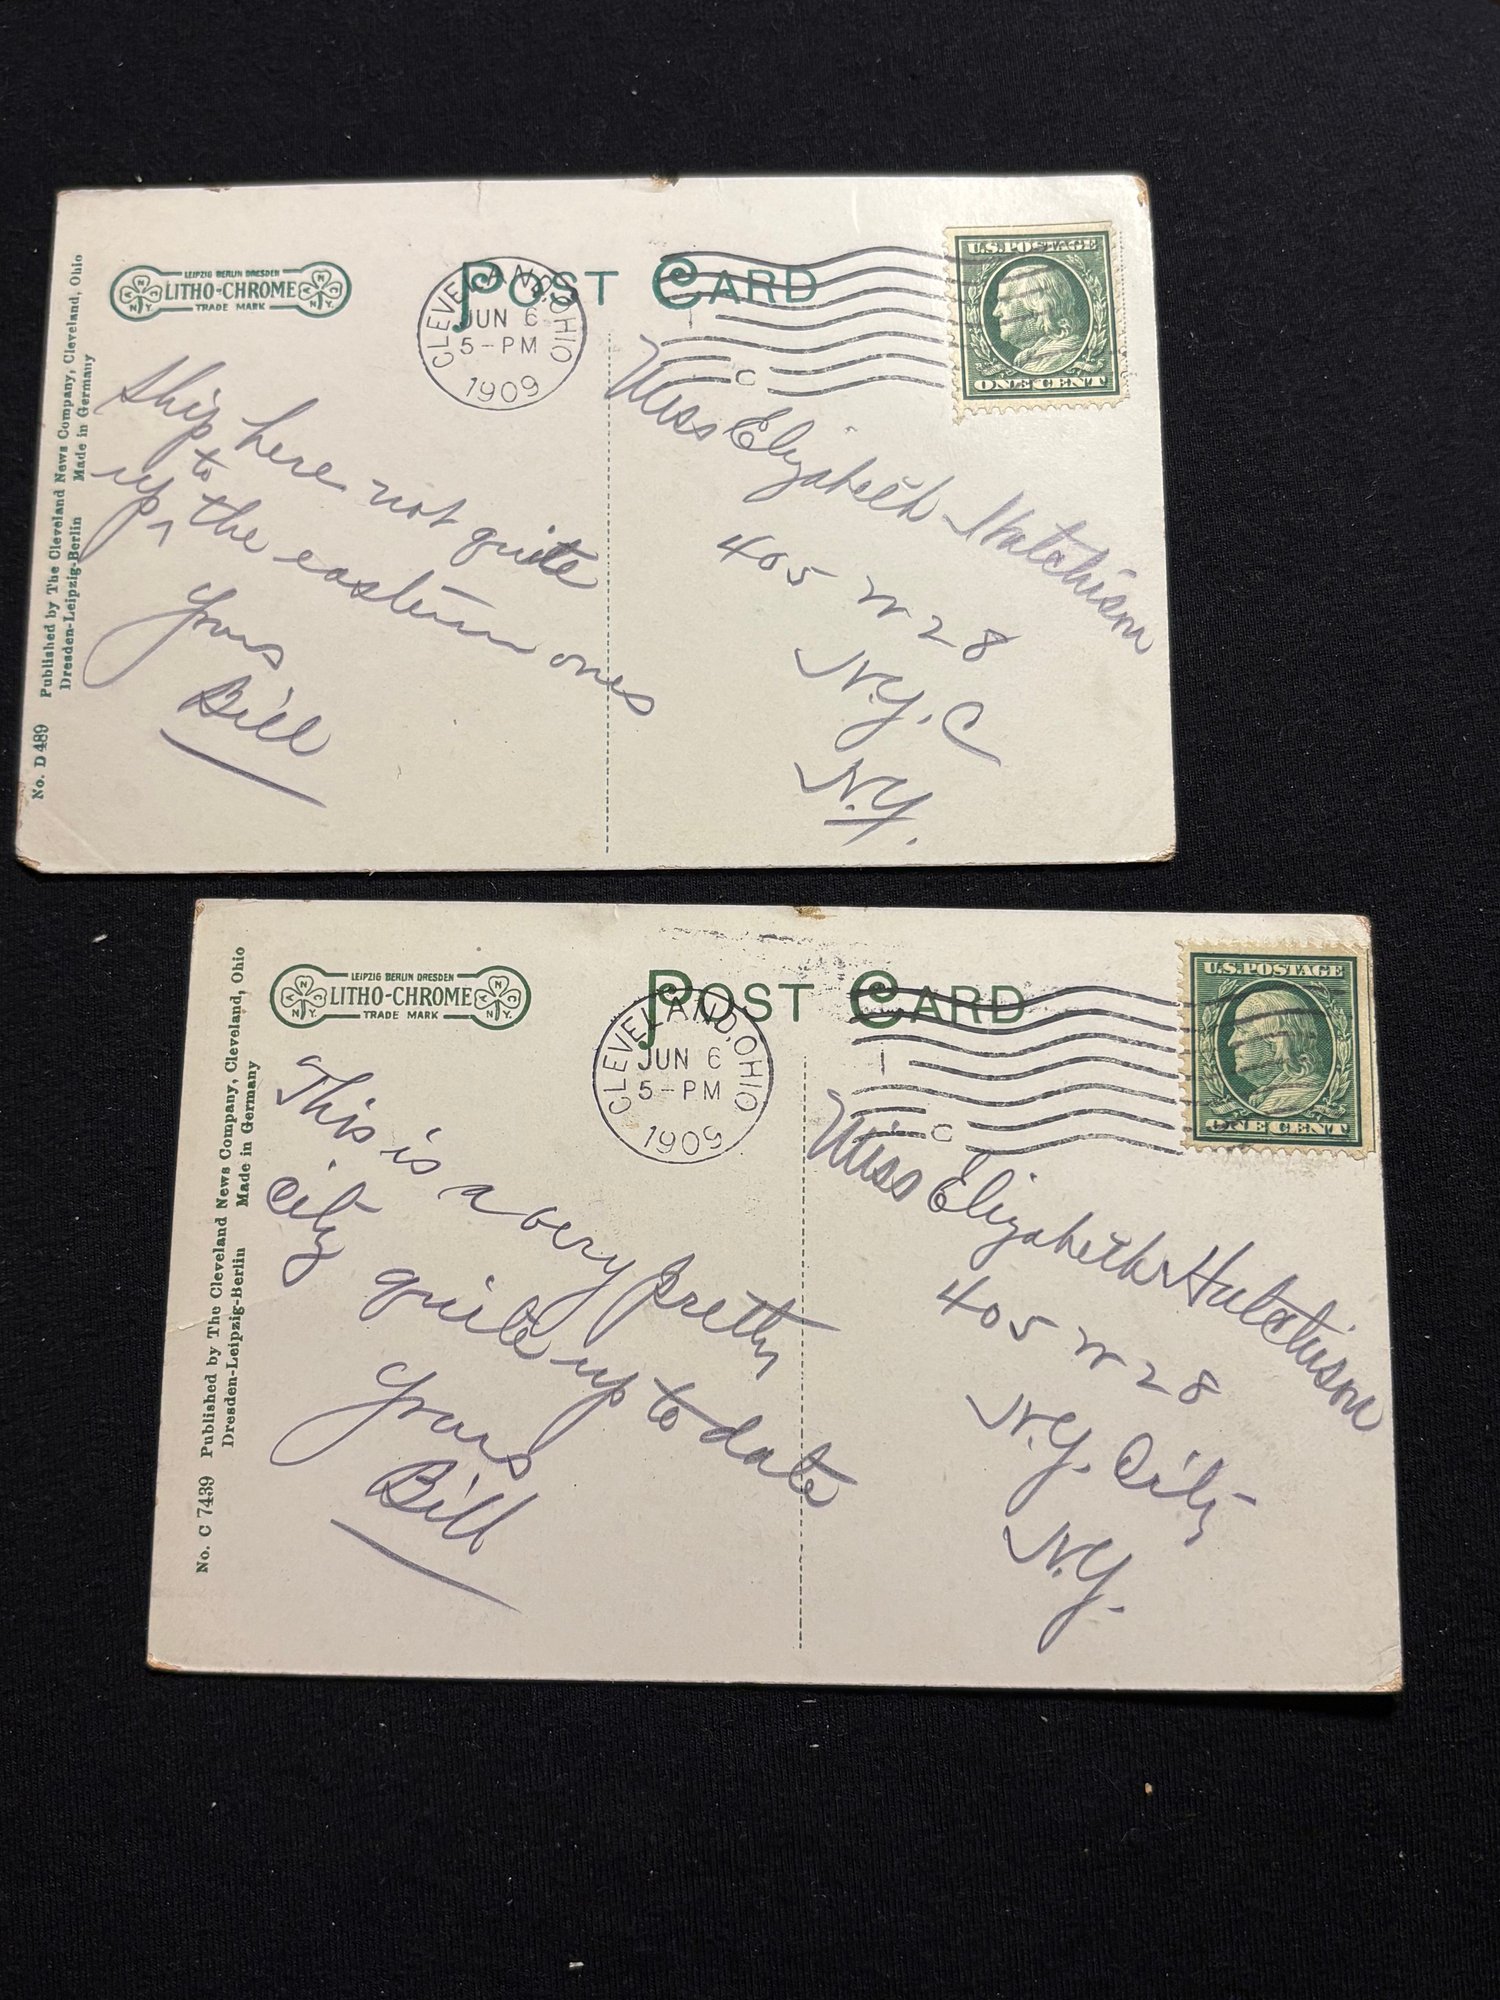 LEIPZIG BERLIN DRESDEN
LITHO-CHROME
TRADE MARK
N.Y.
N.Y.
POST CARD
CLEVELAND, OHIO
JUN 6
5-PM
1909
C
U.S. POSTAGE
ONE CENT
Ship here not quite
up to the eastern ones
Yours
Bill
Miss Elizabeth Hutchison
405 W 28
N.Y. C
N.Y.
No. D 489 Published by The Cleveland News Company, Cleveland, Ohio
Dresden-Leipzig-Berlin Made in Germany
LEIPZIG BERLIN DRESDEN
LITHO-CHROME
TRADE MARK
N.Y.
N.Y.
POST CARD
CLEVELAND, OHIO
JUN 6
5-PM
1909
C
U.S. POSTAGE
ONE CENT
This is a very pretty
city quite up to date
Yours
Bill
Miss Elizabeth Hutchison
405 W 28
N.Y. City
N.Y.
No. C 7439 Published by The Cleveland News Company, Cleveland, Ohio
Dresden-Leipzig-Berlin Made in Germany